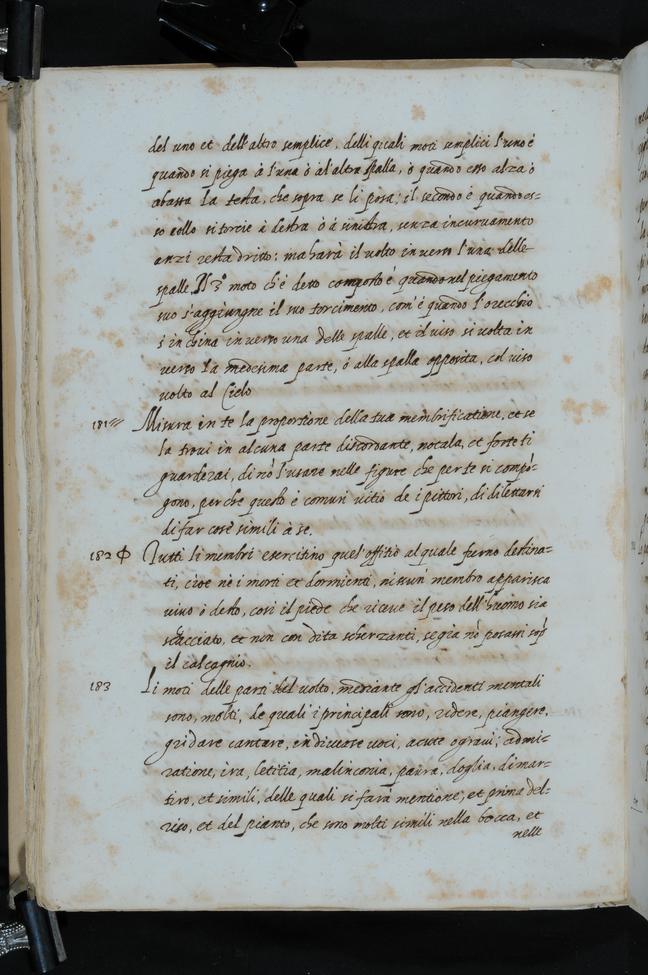 del uno et dell'altro semplice. delli quali moti semplici l'uno é
quando si piega à l'una ò al'altra spalla, ò quando esso alza ò
abassa la testa, che sopra se li posa; il secondo è quando es=
so collo si torcie à destra ò à sinistra, senza incurvamento
anzi resta dritto: ma harà il volto inverso l'una delle
spalle. Il 3° moto ch'é detto composto é quando nel piegamento
suo s'aggiungne il suo torcimento, com'é quando l'orecchio
s'inchina inverso una delle spalle, et il viso si volta in
verso la medesima parte, ó alla spalla opposita, col viso
volto al Cielo
181 Misura in te la proportione della tua membrificatione, et se
la trovi in alcuna parte discordante, notala, et forte ti
guarderai, di nō l'usare nelle figure che per te si compō=
gono, perche questo é comun vitio de i pittori, di dilettarsi
di far cose simili à se.
182 Φ Tutti li membri esercitino quel'offitio al quale furno destina=
ti, cioe ne i morti et dormienti, nissun membro apparisca
vivo ò desto, cosi il piede che riceve il peso dell'huomo sia
stiacciato, et non con dita scherzanti, se gia nō posassi sop̄
il calcagnio.
183 Li moti delle parti del volto, mediante gl'accidenti mentali
sono, molti, de quali i principali sono, ridere, piangere,
gridare cantare, in diverse voci, acute o gravi; admi=
ratione, ira, letitia, malinconia, paura, doglia, di mar=
tiro, et simili, delle quali si farà mentione; et prima del=
riso, et del pianto, che sono molti simili nella bocca, et
nelle